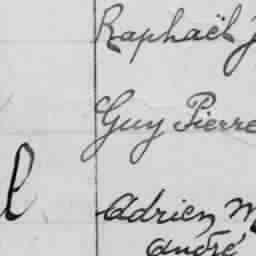 Raphaël J
Guy Pierre
l
Adrien, M
André